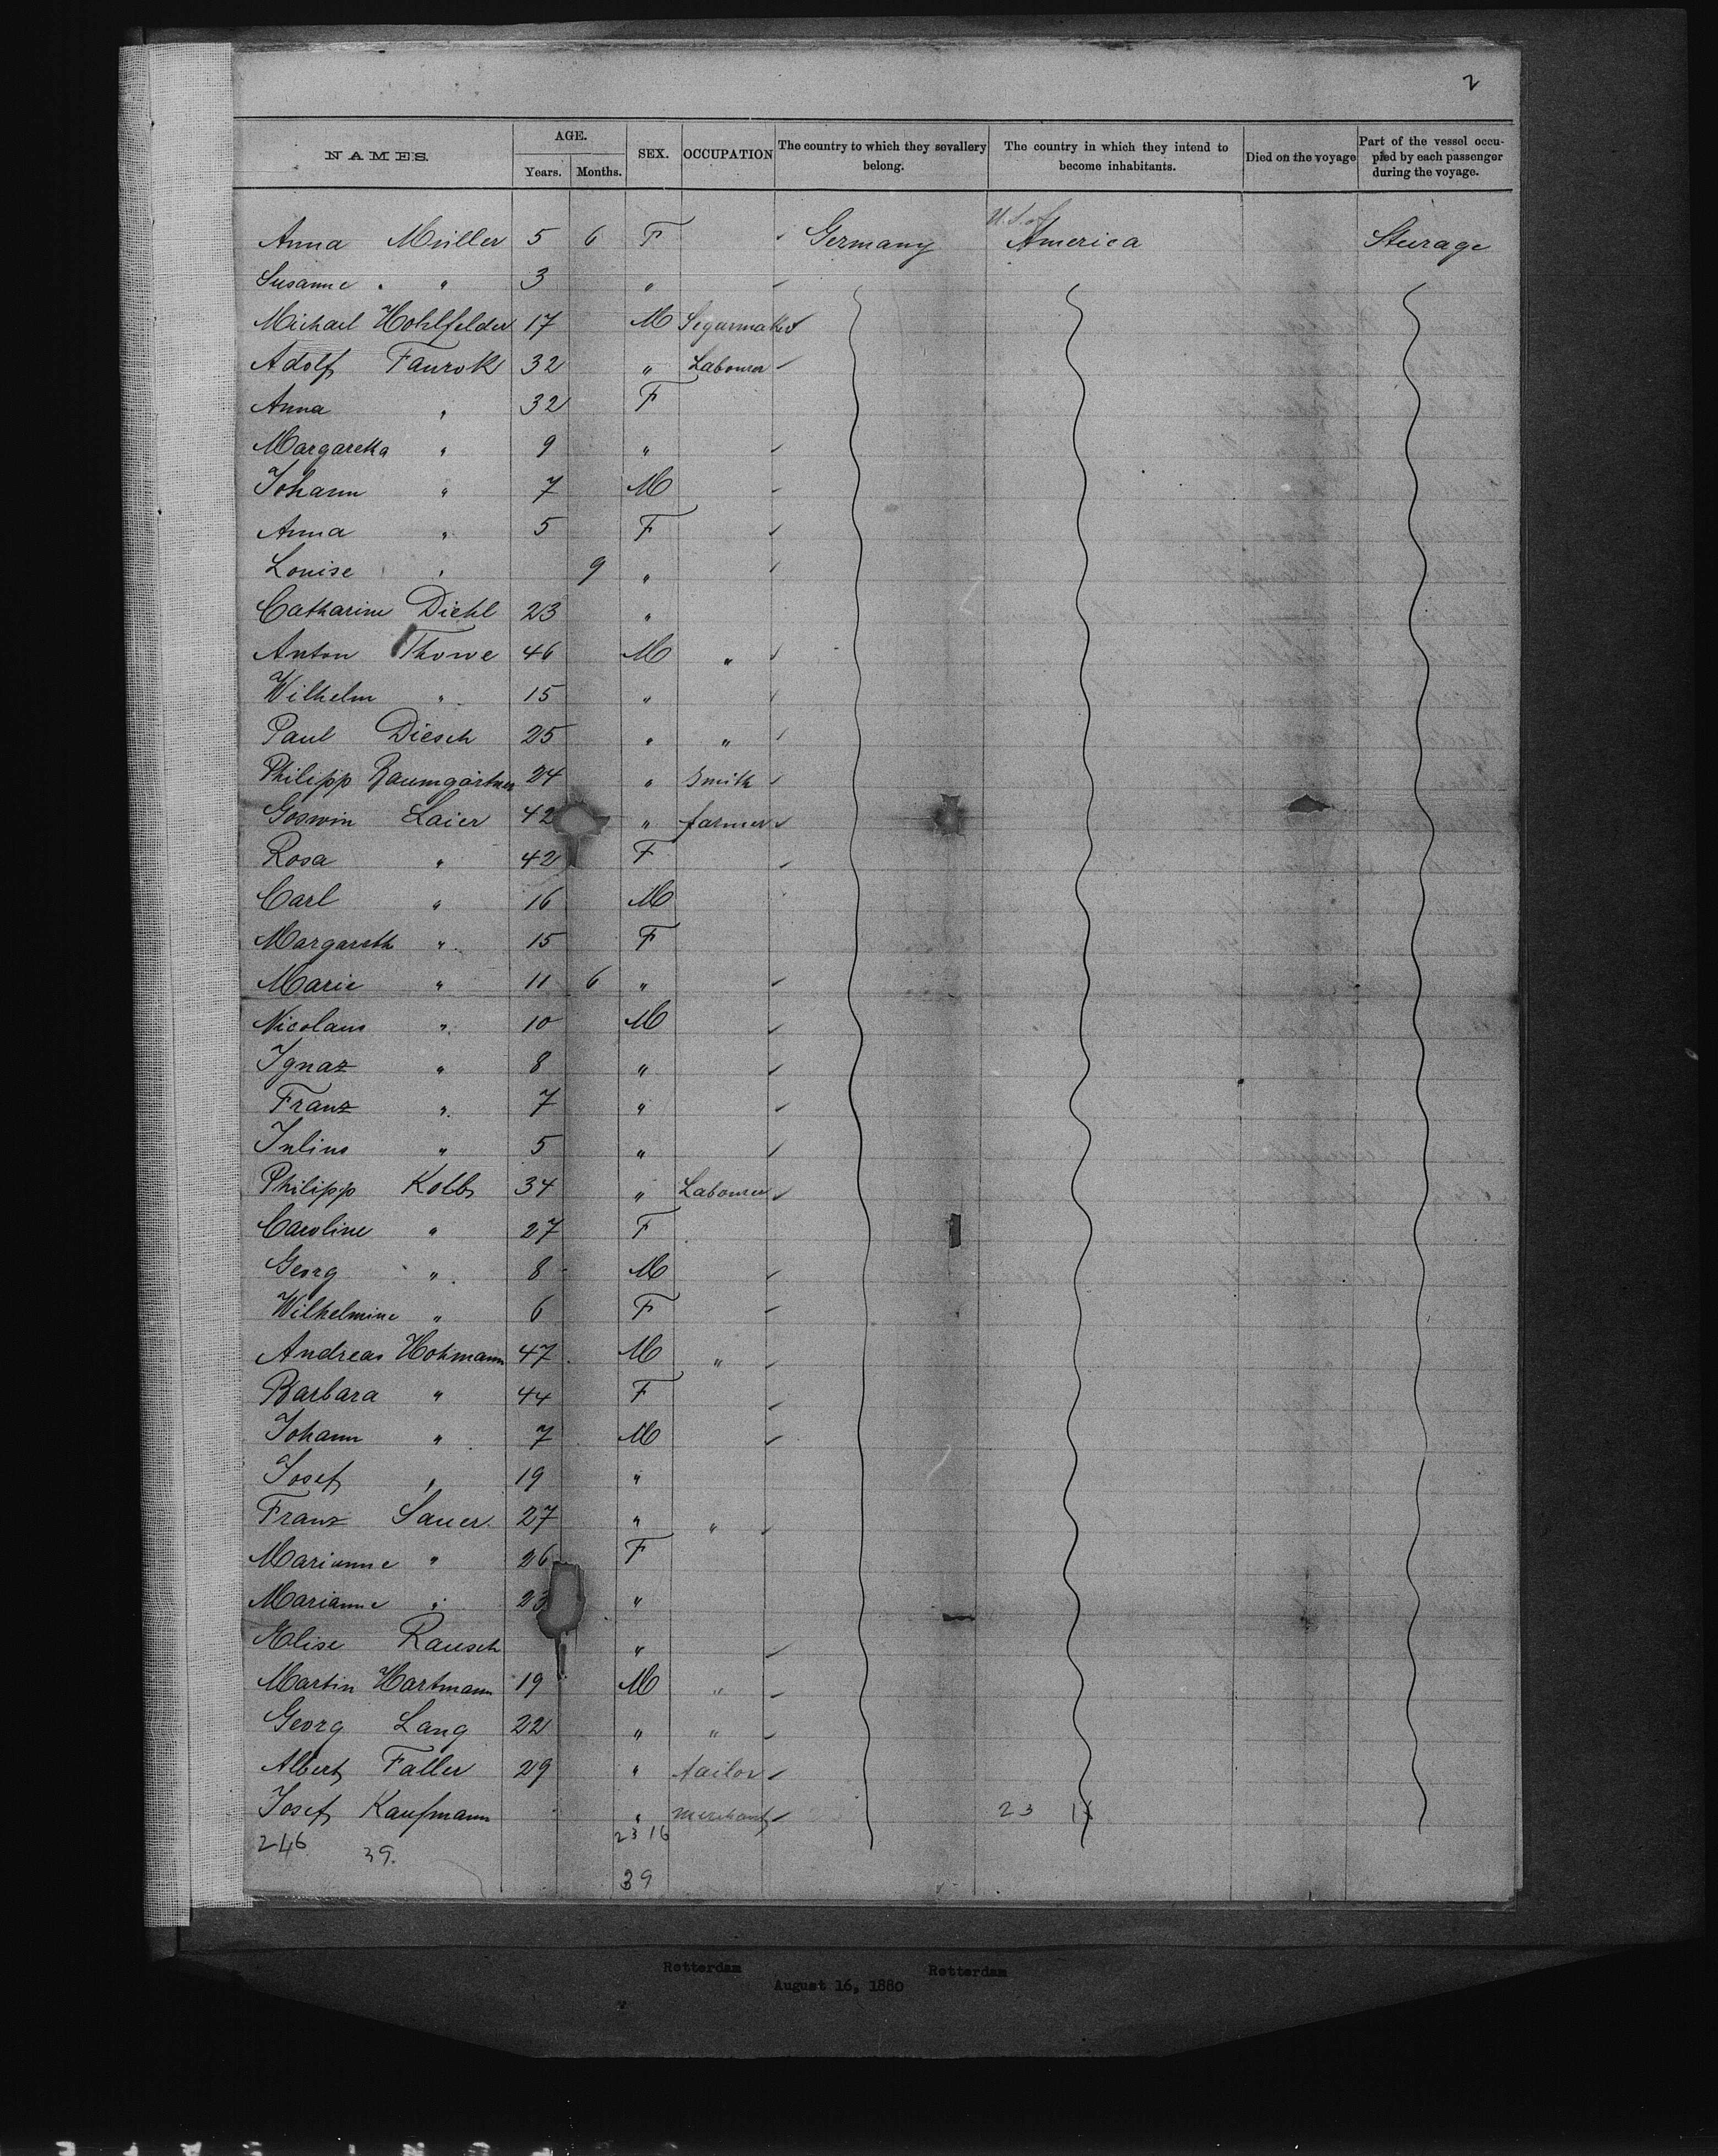 2
NAMES. AGE. Years. Months. SEX. OCCUPATION The country to which they sevallery belong. The country in which they intend to become inhabitants. Died on the voyage Part of the vessel occupied by each passenger during the voyage.
U.S. of
Anna Müller 5 6 F Germany America Steerage
Susanne " 3 "
Michael Hohlfelder 17 M Segarmaker
Adolf Faurok 32 " Labourer
Anna " 32 F
Margaretha " 9 "
Johann " 7 M
Anna " 5 F
Louise " 9 "
Catharine Diehl 23 "
Anton Thowe 46 M "
Wilhelm " 15 "
Paul Diesch 25 " "
Philipp Baumgärtner 24 " Smith
Goswin Laier 42 " farmer
Rosa " 42 F
Carl " 16 M
Margareth " 15 F
Marie " 11 6 "
Nicolaus " 10 M
Ignaz " 8 "
Franz " 7 "
Julius " 5 "
Philipp Kolb 34 " Labourer
Caroline " 27 F
Georg " 8 M
Wilhelmine " 6 F
Andreas Hohmann 47 M "
Barbara " 44 F
Johann " 7 M
Josef " 19 "
Franz Sauer 27 " "
Marianne " 26 F
Marianne " 23 "
Elise Rausch "
Martin Hartmann 19 M "
Georg Lang 22 " "
Albert Faller 29 " tailor
Josef Kaufmann " merchant 23 16
246 39. 23 16
39
Rotterdam Rotterdam
August 16, 1880